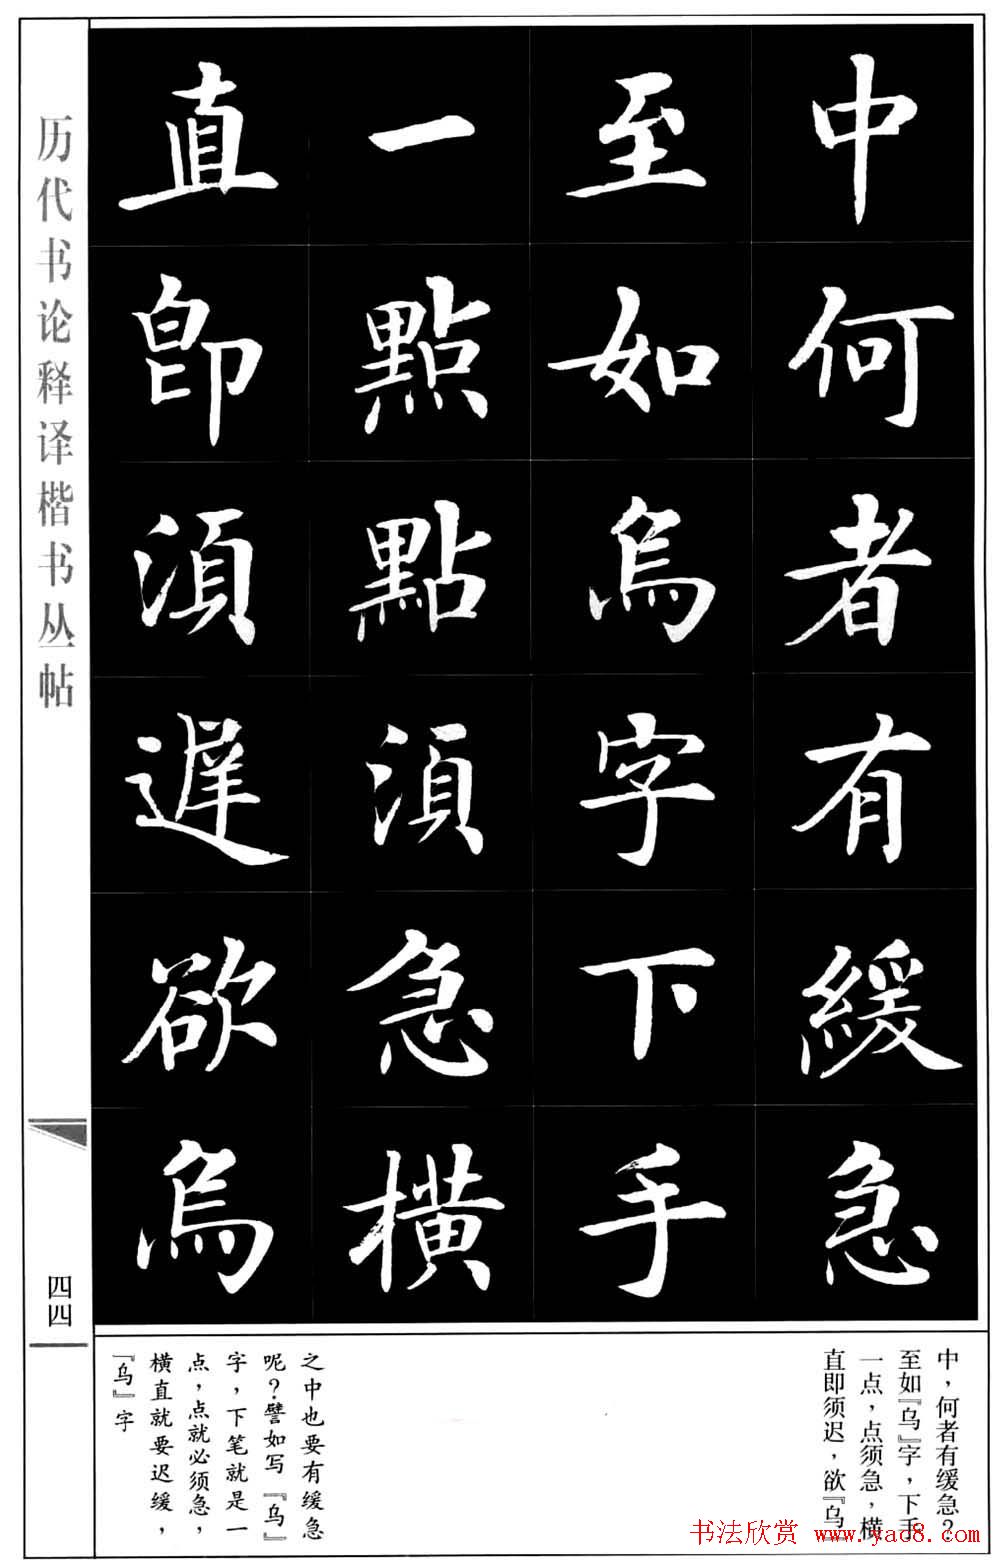 中何者有緩急
至如烏字下手
一點點須急橫
直即須遲欲烏
历代书论释译楷书丛帖
四四
中，何者有缓急？
至如『乌』字，下手
一点，点须急，横
直即须迟，欲『乌』
之中也要有缓急
呢？譬如写『乌』
字，下笔就是一
点，点就必须急，
横直就要迟缓，
『乌』字
书法欣赏 www.yac8.com